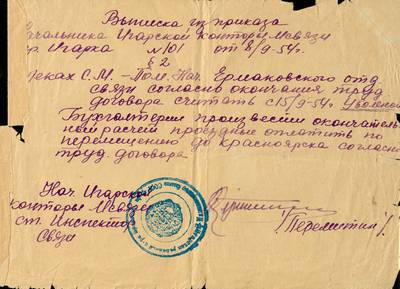 Выписка из приказа
чальника Игарской конторы Мсвязи
ор. Игарка № 101 от 8/9-54г.
§ 2
реках С.М. – Пом. Нач. Ермаковского отд.
связи согласно окончания труд.
договора считать с 15/9-54г. Уволен
Бухгалтерии произвести окончатель-
ный расчет проездные оплатить по
перемещению до Красноярска согласно
труд. договора
Нач. Игарской
конторы Мсвязи
ст. Инспектор
Связи